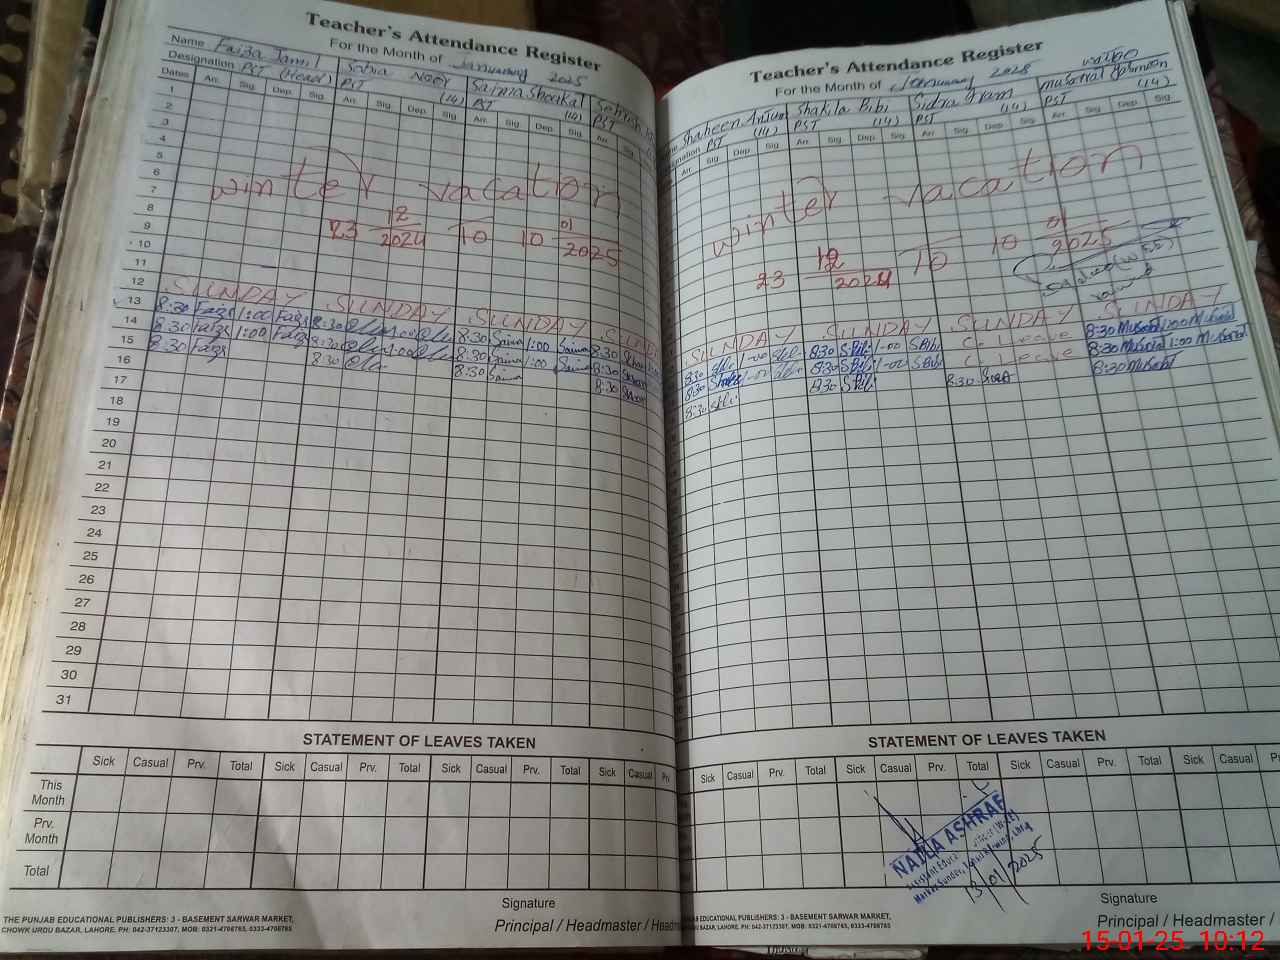 Teacher's Attendance Register
For the Month of January 2025
Name Faiza Jamil Sobia Noor Saima Shoukat
Designation PST (Head) PST (14) PST (14) PST
Dates Arr. Sig. Dep. Sig. Arr. Sig. Dep. Sig. Arr. Sig. Dep. Sig. Arr. Sig.
1
2
3
4
5
6
7
winter vacation
8
9
10
23 12/2024 To 10 01/2025
11
12
SUNDAY SUNDAY SUNDAY
13 8:30 Faiza 1:00 Faiza 8:30 1:00 8:30 Saima 1:00 Saima 8:30
14 8:30 Faiza 1:00 Faiza 8:30 1:00 8:30 Saima 1:00 Saima 8:30
15 8:30 Faiza 8:30 8:30 Saima 8:30
16
17
18
19
20
21
22
23
24
25
26
27
28
29
30
31
STATEMENT OF LEAVES TAKEN
Sick Casual Prv. Total Sick Casual Prv. Total Sick Casual Prv. Total Sick Casual Prv
This Month
Prv. Month
Total
Signature
Principal / Headmaster / Headm
THE PUNJAB EDUCATIONAL PUBLISHERS: 3 - BASEMENT SARWAR MARKET,
CHOWK URDU BAZAR, LAHORE. PH: 042-37123307, MOB: 0321-4706765, 0333-4706765
Teacher's Attendance Register
For the Month of January 2025
Shaheen Anjum Shakila Bibi Sidra Ikram Musarrat
PST (14) PST (14) PST (14) PST (14)
Arr. Sig. Dep. Sig. Arr. Sig. Dep. Sig. Arr. Sig. Dep. Sig. Arr. Sig. Dep. Sig.
winter vacation
23 12/2024 To 10 01/2025
SUNDAY SUNDAY SUNDAY SUNDAY
8:30 1-00 8:30 SBibi 1-00 SBibi C. Leave 8:30 Musarrat 1:00 Musarrat
8:30 1-00 8:30 SBibi 1-00 SBibi C. Leave 8:30 Musarrat 1:00 Musarrat
8:30 8:30 SBibi 8:30 8:30 Musarrat
STATEMENT OF LEAVES TAKEN
Sick Casual Prv. Total Sick Casual Prv. Total Sick Casual Prv. Total Sick Casual P
NAILA ASHRAF
13/01/2025
Signature
Principal / Headmaster /
EDUCATIONAL PUBLISHERS: 3 - BASEMENT SARWAR MARKET,
URDU BAZAR, LAHORE. PH: 042-37123307, MOB: 0321-4706765, 0333-4706765
15-01-25 10:12